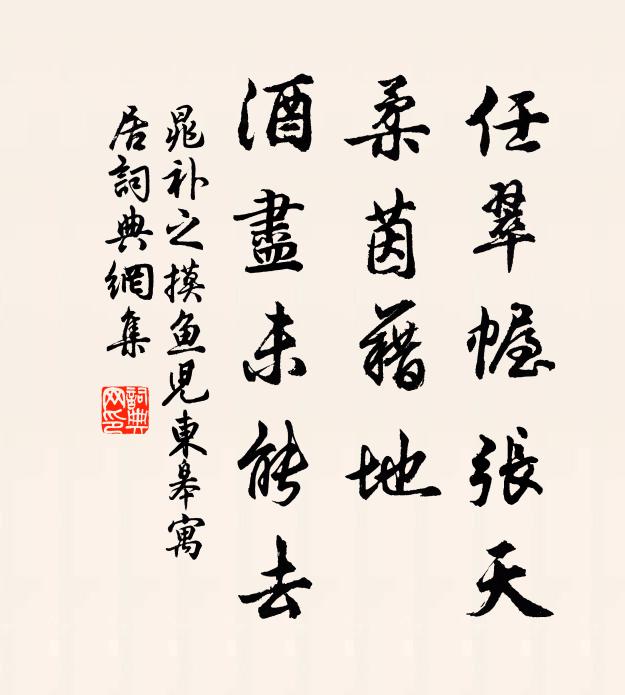 任翠幄張天
柔茵藉地
酒盡未能去
晁补之摸鱼児東皋寓
居詞典網集
詞典
网印